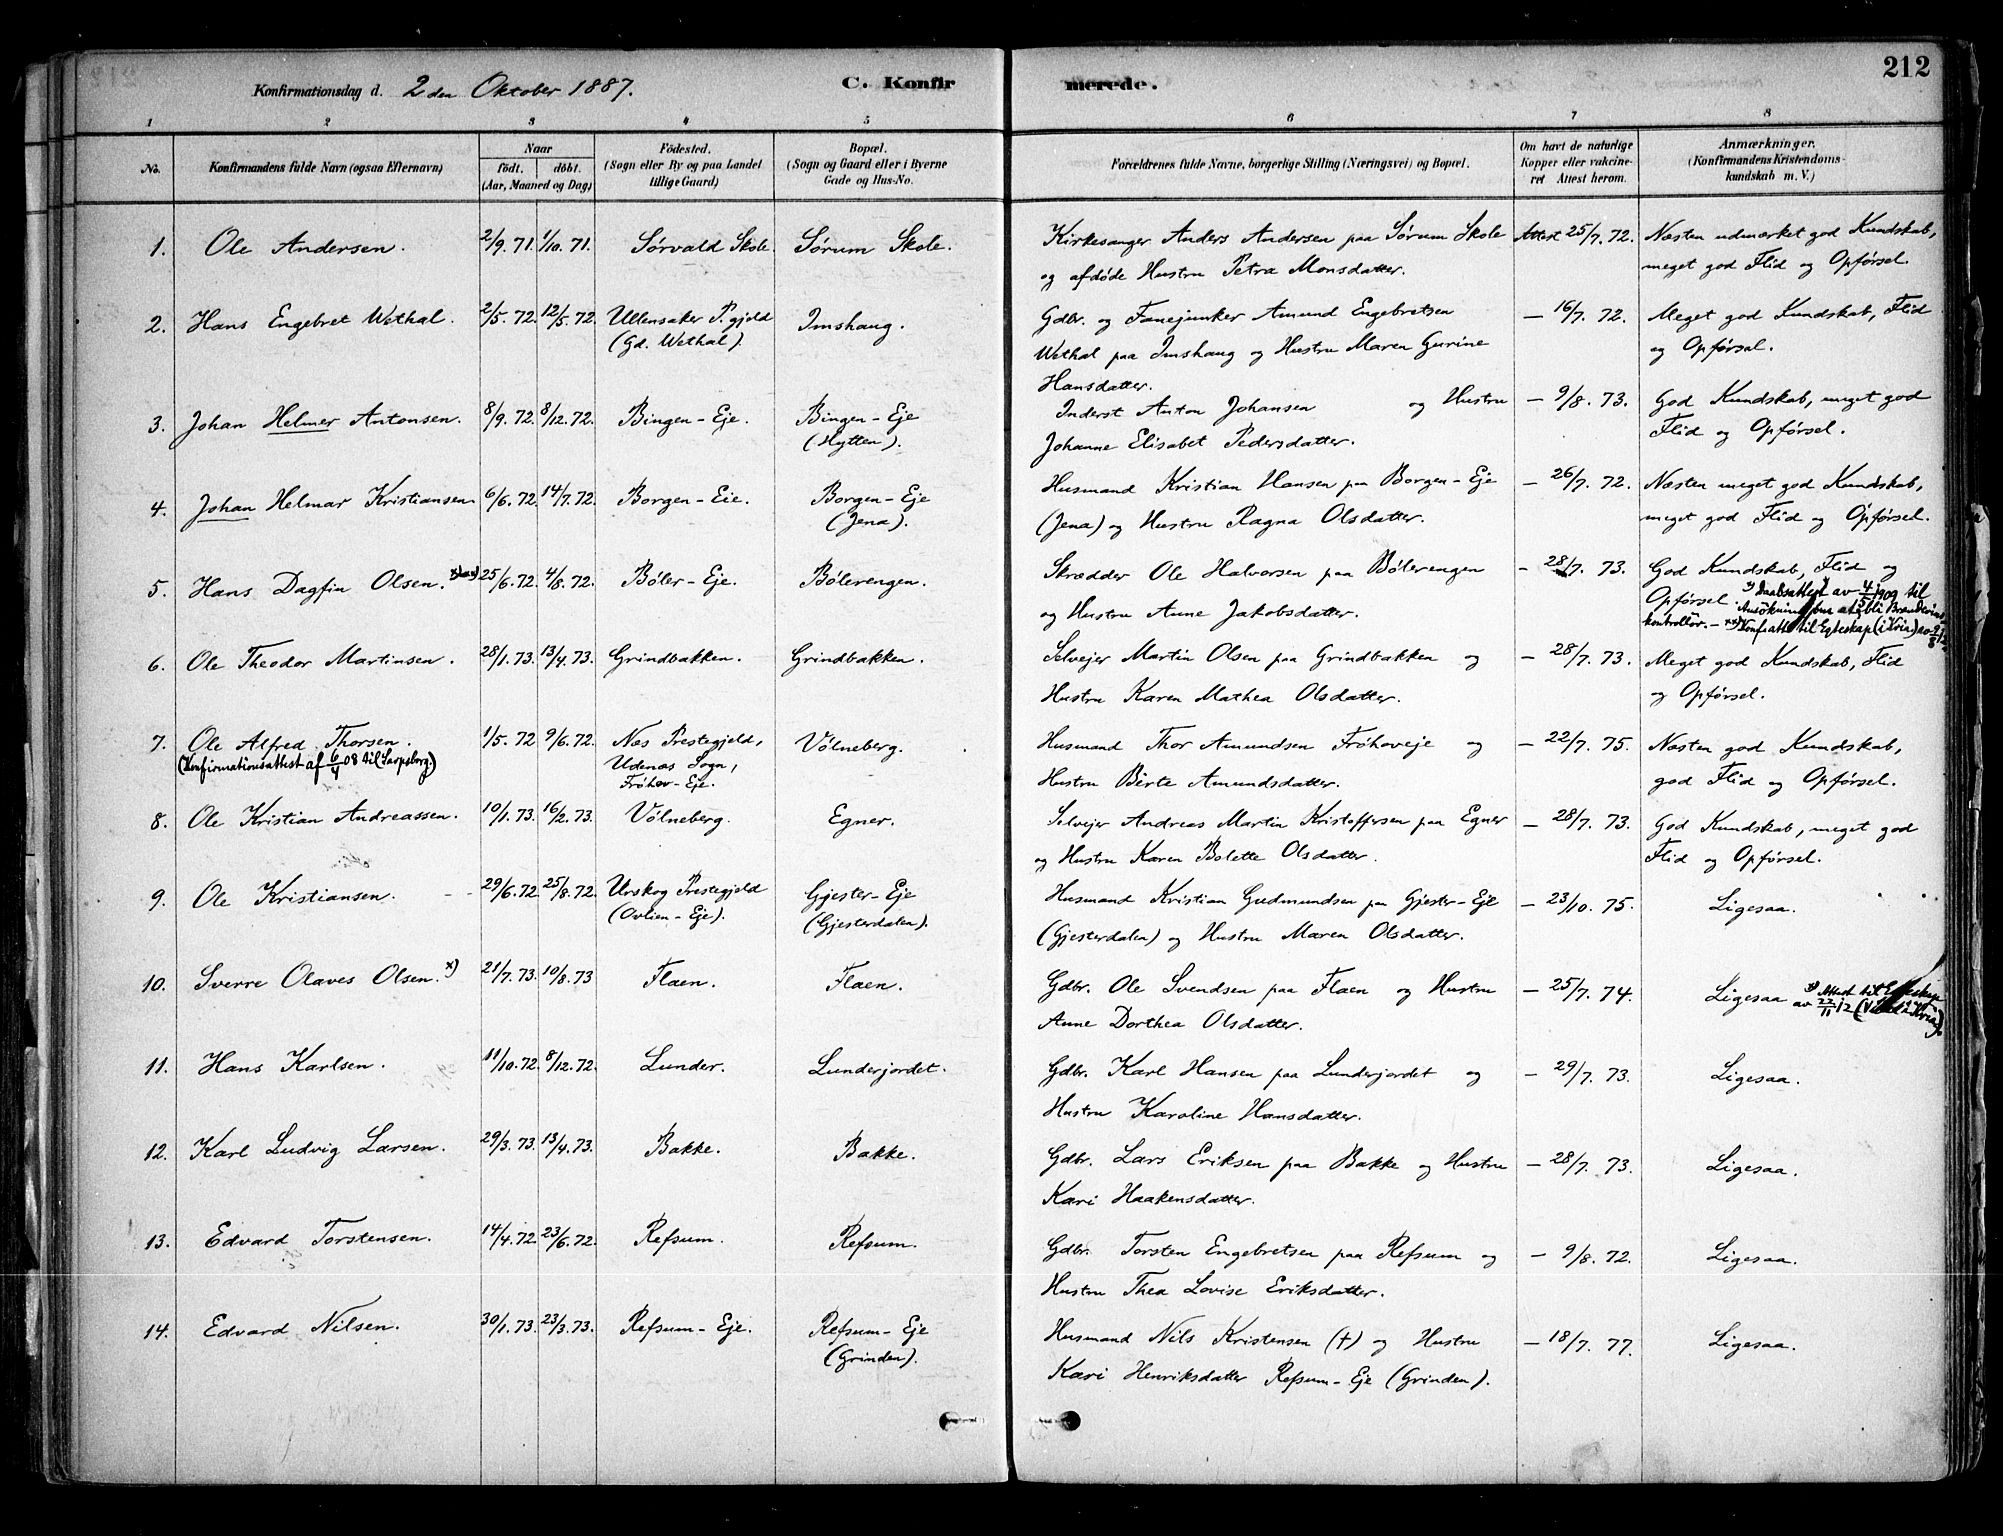 212
Konfirmationsdag d. 2den Oktober 1887. C. Konfir merede.
1 2 3 4 5 6 7 8
No. Konfirmandens fulde Navn (ogsaa Efternavn) Naar født. døbt. (Aar, Maaned og Dag) Födested. (Sogn eller By og paa Landet tillige Gaard) Bopæl. (Sogn og Gaard eller i Byerne Gade og Hus-No. Forældrenes fulde Navne, borgerlige Stilling (Næringsvei) og Bopæl. Om havt de naturlige Kopper eller vakcineret Attest herom. Anmærkninger. (Konfirmandens Kristendomskundskab m. V.)
1. Ole Andersen. 2/9. 71. 1/10. 71. Sørvald Skole. Sørum Skole. Kirkesanger Anders Andersen paa Sørum Skole Attest 25/7. 72. Næsten udmærket god Kundskab,
og afdøde Hustru Petra Monsdatter. meget god Flid og Opførsel.
2. Hans Engebret Wethal. 2/5. 72. 12/5. 72. Ullensaker P.gjeld Imshaug. Gdbr. og Fanejunker Amund Engebretsen — 16/7. 72. Meget god Kundskab, Flid
(Gd. Wethal). Wethal paa Imshaug og Hustru Maren Gurine og Opførsel.
Hansdatter.
3. Johan Helmer Antonsen. 8/9. 72. 8/12. 72. Bingen-Eje. Bingen-Eje Inderst Anton Johansen og Hustru — 9/8. 73. God Kundskab, meget god
(Hytten). Johanne Elisabet Pedersdatter. Flid og Opførsel.
4. Johan Helmar Kristiansen 6/6. 72. 14/7. 72. Borgen-Eie. Borgen-Eje Husmand Kristian Hansen paa Borgen-Eje — 26/7. 72. Næsten meget god Kundskab,
(Jena). (Jena) og Hustru Ragna Olsdatter. meget god Flid og Opførsel.
5. Hans Dagfin Olsen. 25/6. 72. 4/8. 72. Bøler-Eje. Bølerengen. Skrædder Ole Halvorsen paa Bølerengen — 28/7. 73. God Kundskab, Flid og
og Hustru Anne Jakobsdatter. Opførsel. x) Daabsattest av 4/5 1909 til
at bli
kontrollør. – xx) Konf.att. til Egteskap (i Kria) av
6. Ole Theodor Martinsen. 28/1. 73. 13/4. 73. Grindbakken. Grindbakken. Selvejer Martin Olsen paa Grindbakken og — 28/7. 73. Meget god Kundskab, Flid
Hustru Karen Mathea Olsdatter. og Opførsel.
7. Ole Alfred Thorsen. 1/5. 72 9/6. 72. Nes Prestegjeld, Vølneberg. Husmand Thor Amundsen Frøhoveje og — 22/7. 75. Næsten god Kundskab,
(Konfirmationsattest af 6/4 08 til Sarpsborg.) Udenæs Sogn, Hustru Birte Amundsdatter. god Flid og Opførsel.
Frøhov-Eje.
8. Ole Kristian Andreassen. 10/1. 73. 16/2. 73. Vølneberg. Egner. Selvejer Andreas Martin Kristoffersen paa Egner — 28/7. 73. God Kundskab, meget god
og Hustru Karen Bolette Olsdatter. Flid og Opførsel.
9. Ole Kristiansen. 29/6. 72. 25/8. 72. Urskog Prestegjeld Gjester-Eje Husmand Kristian Gudmundsen paa Gjester-Eje — 23/10. 75. Ligesaa.
(Ovlien-Eje). (Gjesterdalen). (Gjesterdalen) og Hustru Maren Olsdatter.
10. Sverre Olaves Olsen. x) 21/7. 73. 10/8. 73 Flaen. Flaen. Gdbr. Ole Svendsen paa Flaen og Hustru — 25/7. 74. Ligesaa x) Attest til Egteskap
Anne Dorthea Olsdatter. av 22/11 12
11. Hans Karlsen. 11/10. 72. 8/12. 72. Lunder. Lunderjordet. Gdbr. Karl Hansen paa Lunderjordet og — 29/7. 73. Ligesaa.
Hustru Karoline Hansdatter.
12. Karl Ludvig Larsen. 29/3. 73. 13/4. 73. Bakke. Bakke. Gdbr. Lars Eriksen paa Bakke og Hustru — 28/7. 73. Ligesaa.
Kari Haakensdatter.
13. Edvard Torstensen. 14/4. 72. 23/6. 72. Refsum. Refsum. Gdbr. Torsten Engebretsen paa Refsum og — 9/8. 72. Ligesaa.
Hustru Thea Lovise Eriksdatter.
14. Edvard Nilsen. 30/1. 73. 23/3. 73. Refsum-Eje. Refsum-Eje Husmand Nils Kristensen (†) og Hustru — 18/7. 77. Ligesaa.
(Grinden). Kari Henriksdatter Refsum-Eje (Grinden).